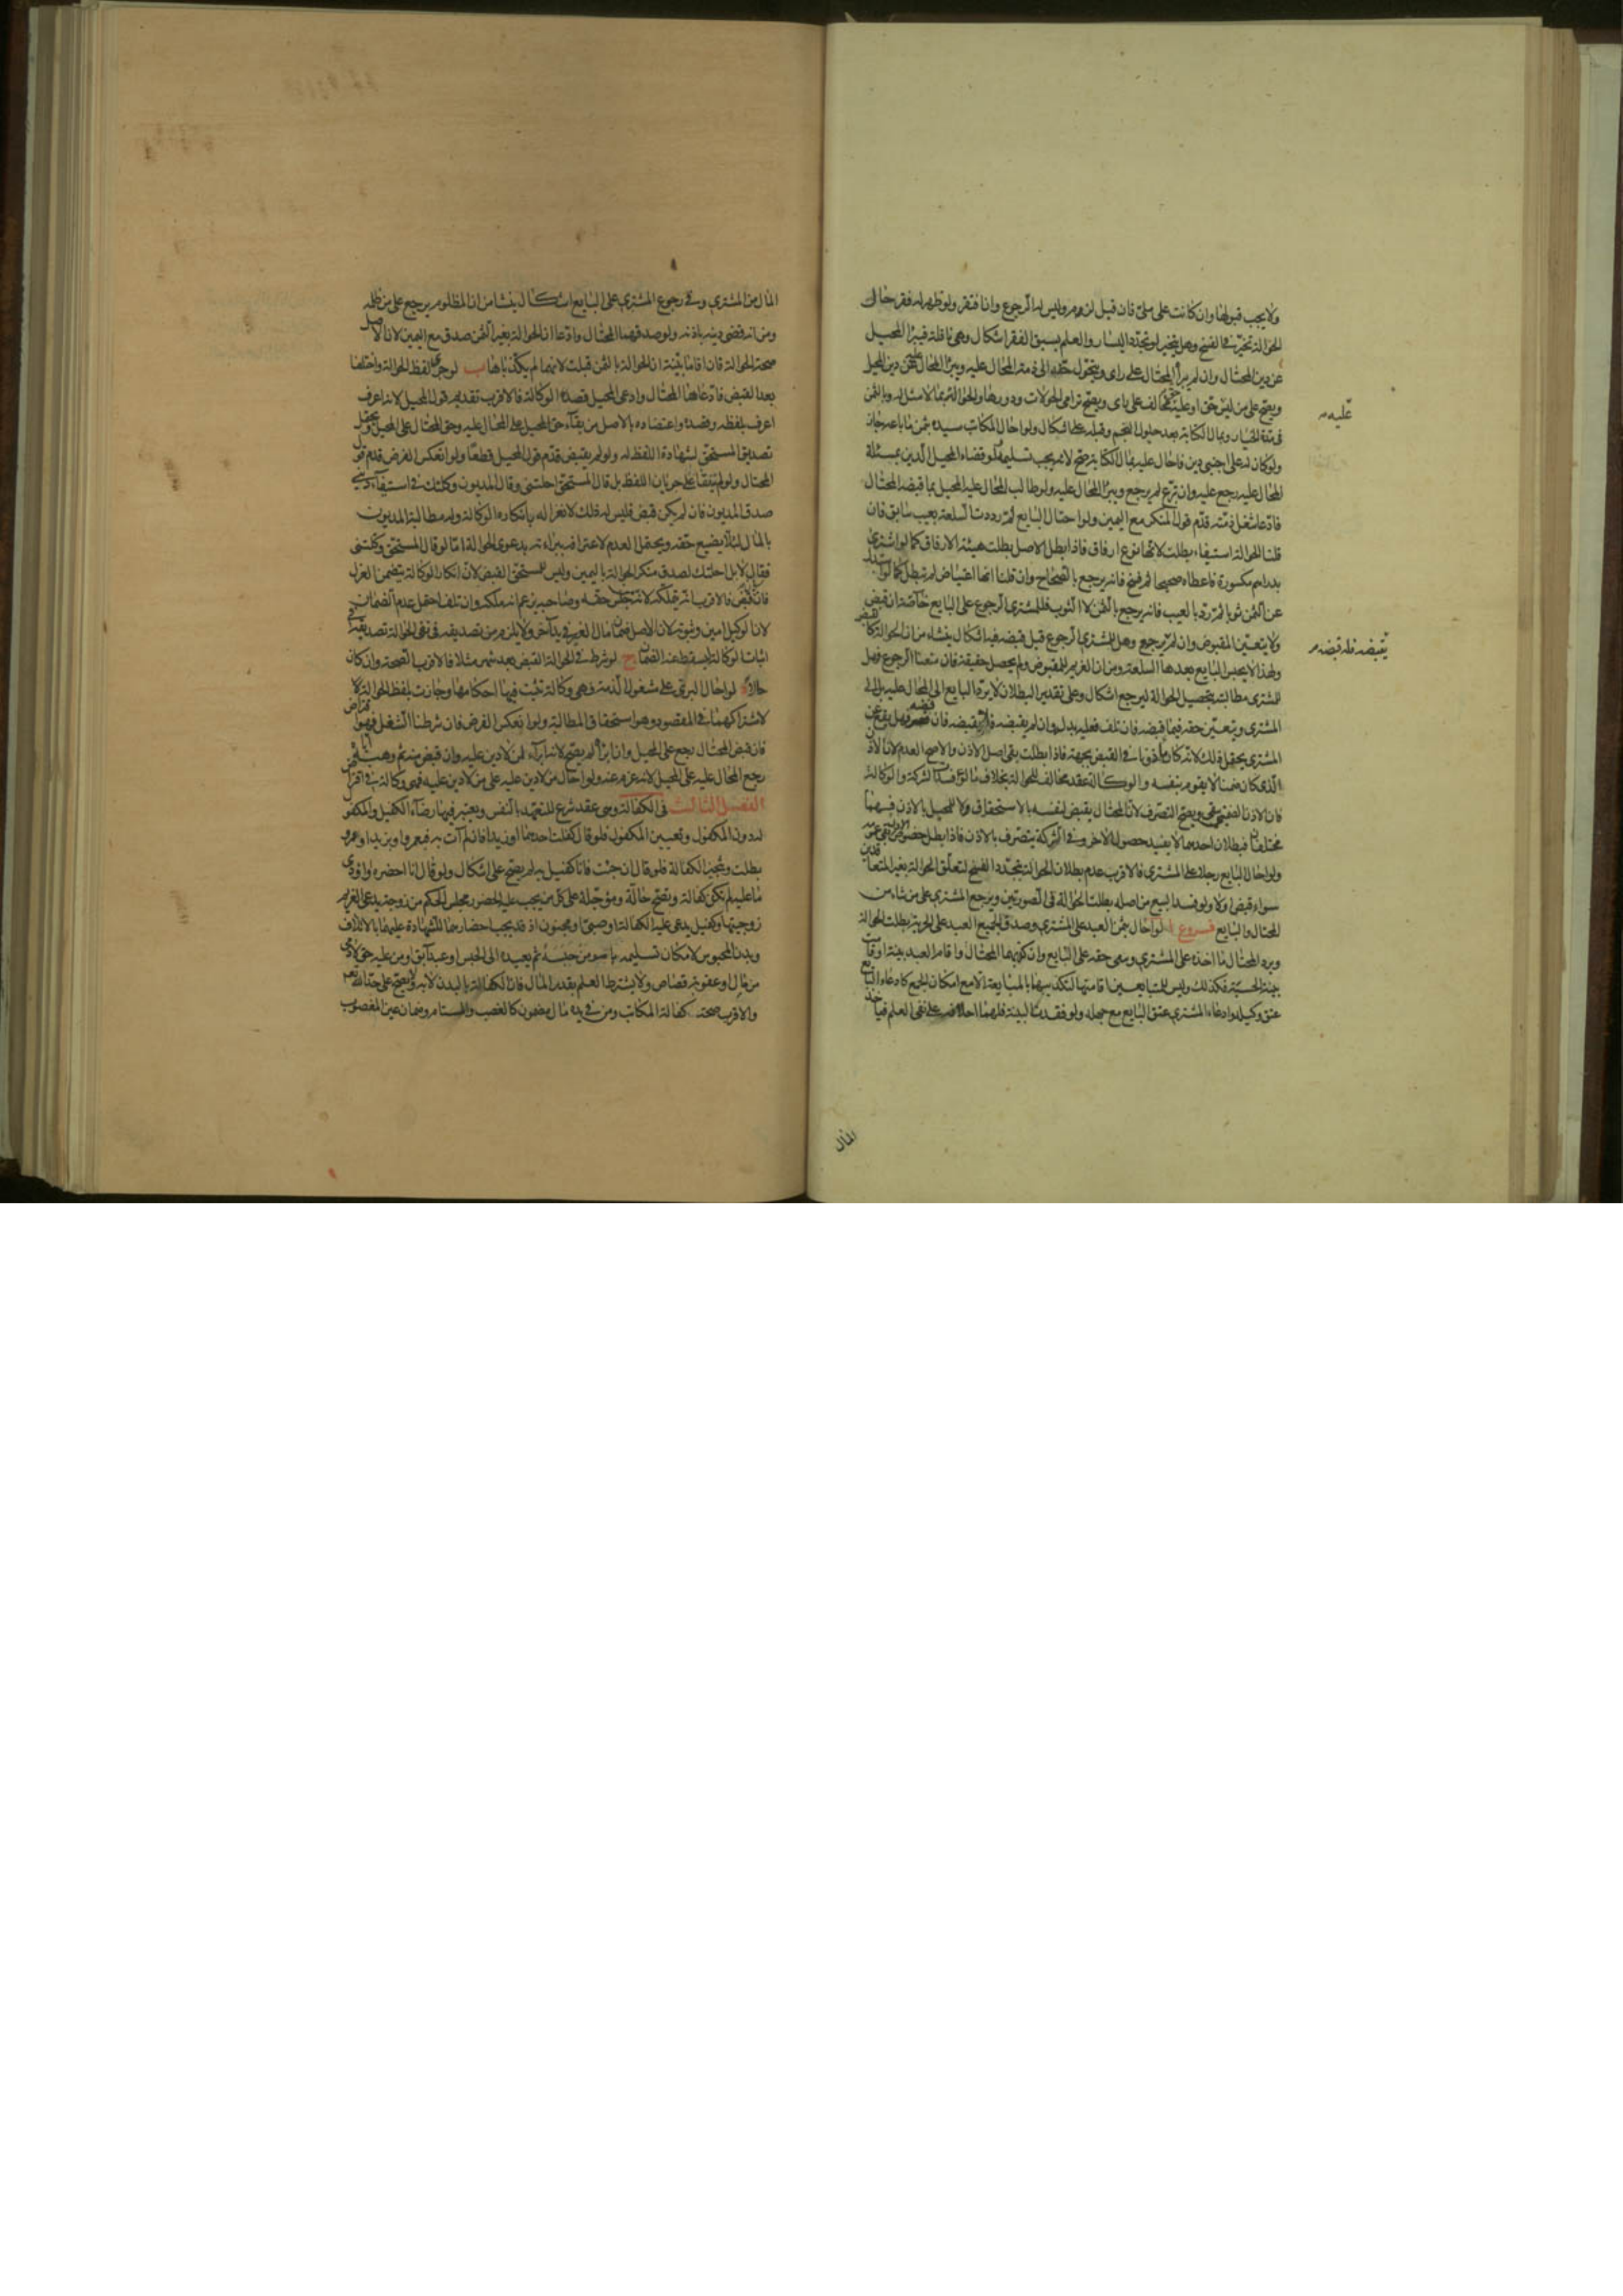 ولا يجب قبولها وان كانت على ملي فان قيل لزم وليس له الرجوع وان افتقر ولو ظهر له فقر حال
الحوالة تخير في الفسخ وهل يتخير لو تجدد اليسار والعلم بسبق الفقر اشكال وهي ناقلة فيبرأ المحيل
عن دين المحتال وان لم يبرأ المحتال على راى ويتحول حقه الى ذمة المحال عليه ويبرأ المحال عليه عن دين المحيل
ويصح على من ليس عليه حق او عليه مخالف على راى ويصح ترامى الحوالات ودورها والحوالة بما لا مثل له وبالثمن
في مدة الخيار وبمال الكتابة بعد حلول النجم وقبله على اشكال ولو احال المكاتب سيده بثمن ما باعه جاز
ولو كان له على اجنبي دين فاحال عليه بمال الكتابة صح لانه يجب تسليمه ولو قضاه المحيل الدين بمسئلة
المحال عليه رجع عليه وان تبرع لم يرجع ويبرأ المحال عليه ولو طالب المحال عليه المحيل بما قبضه المحتال
فادعا شغل ذمته قدم قول المنكر مع اليمين ولو احتال البايع ثم ردت السلعة بعيب سابق فان
قلنا الحوالة استيفاء بطلت لانها نوع ارفاق فاذا بطل الاصل بطلت هيئة الارفاق كما لو اشترى
بدراهم مكسورة فاعطاه صحيحا ثم فسخ فانه يرجع بالصحاح وان قلنا انها اعتياض لم تبطل كما لو استبدل
عن الثمن ثوبا ثم رد بالعيب فانه يرجع بالثمن لا الثوب فللمشترى الرجوع على البايع خاصة ان قبض
ولا يتعين المقبوض وان لم يرجع وهل للمشترى الرجوع قبل قبضه فيه اشكال ينشاء من ان الحوالة كالقبض
ولهذا لا يحبس البايع بعدها السلعة ومن ان الغريم للمقبوض ولم يحصل حقيقة فان منعنا الرجوع فهل
للمشترى مطالبته بتحصيل الحوالة ليرجع اشكال وعلى تقدير البطلان لا يرد البايع الى المحال عليه بل الى
المشترى ويتعين حقه فيما قبضه فان تلف فعليه بدله وان لم يقبضه فلا يقبضه فان قبضه فهل يقع عن
المشترى يحتمل ذلك لانه كان ماذونا في القبض بجهة فاذا بطلت بقى اصل الاذن والاصح العدم لان الاذن
الذى كان ضمنا لا يقوم بنفسه والوكالة عقد مخالف للحوالة بخلاف ما لو فسدت الشركة والوكالة
فان الاذن الضمني يبقى ويصح التصرف لان المحتال يقبض لنفسه بالاستحقاق ولا للمحيل بالاذن فهما
مختلفان فبطلان احدهما لا يفيد حصول الاخر وفي الشركة يتصرف بالاذن فاذا بطل خصوص الاذن بقى عمومه
ولو احال البايع رجلا على المشترى فالاقرب عدم بطلان الحوالة بتجدد الفسخ لتعلق الحوالة بغير المتعاقدين
سواء قبض او لا ولو فسد البيع من اصله بطلت الحوالة في الصورتين ويرجع المشترى على من شاء من
المحتال والبايع فروع ا لو احال بثمن العبد على المشترى وصدق الجميع العبد على الحرية بطلت الحوالة
ويرد المحتال ما اخذه على المشترى وبقى حقه على البايع وان كذبهما المحتال واقام العبد بينة او قامت
بينة الحسبة فكذلك وليس للمتبايعين اقامتها لتكذيبهما بالمبايعة الا مع امكان الجمع كادعاء البايع
عتق وكيله وادعاء المشترى عتق البايع مع جهله ولو فقدت البينة فلهما احلافه على نفى العلم فياخذ
عليه
يقبضه فله قبضه
المال
المال من المشترى وفي رجوع المشترى على البايع اشكال ينشا من ان المظلوم يرجع على من ظلمه
ومن انه قضى دينه باذنه ولو صدقهما المحتال وادعا ان الحوالة بغير الثمن صدق مع اليمين لان الاصل
صحة الحوالة فان اقاما بينة ان الحوالة بالثمن قبلت لانهما لم يكذباها ب لو جرى لفظ الحوالة واختلفا
بعد القبض فادعاها المحتال وادعى المحيل قصد الوكالة فالاقرب تقديم قول المحيل لانه اعرف
اعرف بلفظه وقصده واعتضاده بالاصل من بقاء حق المحيل على المحال عليه وحق المحتال على المحيل ويحتمل
تصديق المستحق لشهادة اللفظ له ولو لم يقبض قدم قول المحيل قطعا ولو انعكس الفرض قدم قول
المحتال ولو لم يتفقا على جريان اللفظ بل قال المستحق احلتني وقال المديون وكلتك في استيفاء ديني
صدق المديون فان لم يكن قبض فليس له ذلك لانعزاله بانكاره الوكالة وله مطالبة المديون
بالمال لئلا يضيع حقه ويحتمل العدم لاعترافه ببراءته بدعوى الحوالة اما لو قال المستحق وكلتنى
فقال لا بل احلتك صدق منكر الحوالة باليمين وليس للمستحق القبض لان انكار الوكالة يتضمن العزل
فان قبض فالاقرب انه يملكه لانه جنس حقه وصاحبه يزعم انه ملكه وان تلف احتمل عدم الضمان
لان الوكيل امين وثبوته لان الاصل ضمان مال الغير في يد آخر ولا يلزم من تصديقه في نفى الحوالة تصديقه في
اثبات الوكالة ليسقط عنه الضمان ج لو شرط في الحوالة القبض بعد شهر مثلا فالاقرب الصحة وان كان
حالا د لو احال البرئ على مشغول الذمة فهى وكالة تثبت فيها احكامها وجازت بلفظ الحوالة
لاشتراكهما في المقصود وهو استحقاق المطالبة ولو انعكس الفرض فان شرطنا الشغل فهو اقتراض
فان قبض المحتال رجع على المحيل وان ابرأ لم يصح لانه ابراء لمن لا دين عليه وان قبض منه ثم وهبه اياه
رجع المحال عليه على المحيل لانه غرم عنه ولو احال من لا دين عليه على من لا دين عليه فهى وكالة في اقتراض
الفصل الثالث في الكفالة وهى عقد شرع للتعهد بالنفس ويعتبر فيها رضاء الكفيل والمكفول
له دون المكفول وتعيين المكفول فلو قال كفلت احدهما او زيدا فان لم آت به فبعمرو او بزيد او عمرو
بطلت وتنجيز الكفالة فلو قال ان جئت فانا كفيل به لم يصح على اشكال ولو قال انا احضره او اؤدى
ما عليه لم تكن كفالة وتصح حالة ومؤجلة على كل من يجب عليه الحضور مجلس الحكم من زوجة يدعى الغريم
زوجيتها او كفيل يدعى عليه الكفالة او صبى او مجنون اذ قد يجب احضارهما للشهادة عليهما بالاتلاف
وبدن المحبوس لامكان تسليمه بامر من حبسه ثم يعيده الى الحبس او عبد آبق او من عليه حق لآدمى
من مال او عقوبة قصاص ولا يشترط العلم بقدر المال فان الكفالة بالبدن لا به ولا يصح على حد الله تعالى
والاقرب صحة كفالة المكاتب ومن في يده مال مضمون كالغصب والمستام وضمان عين المغصوب